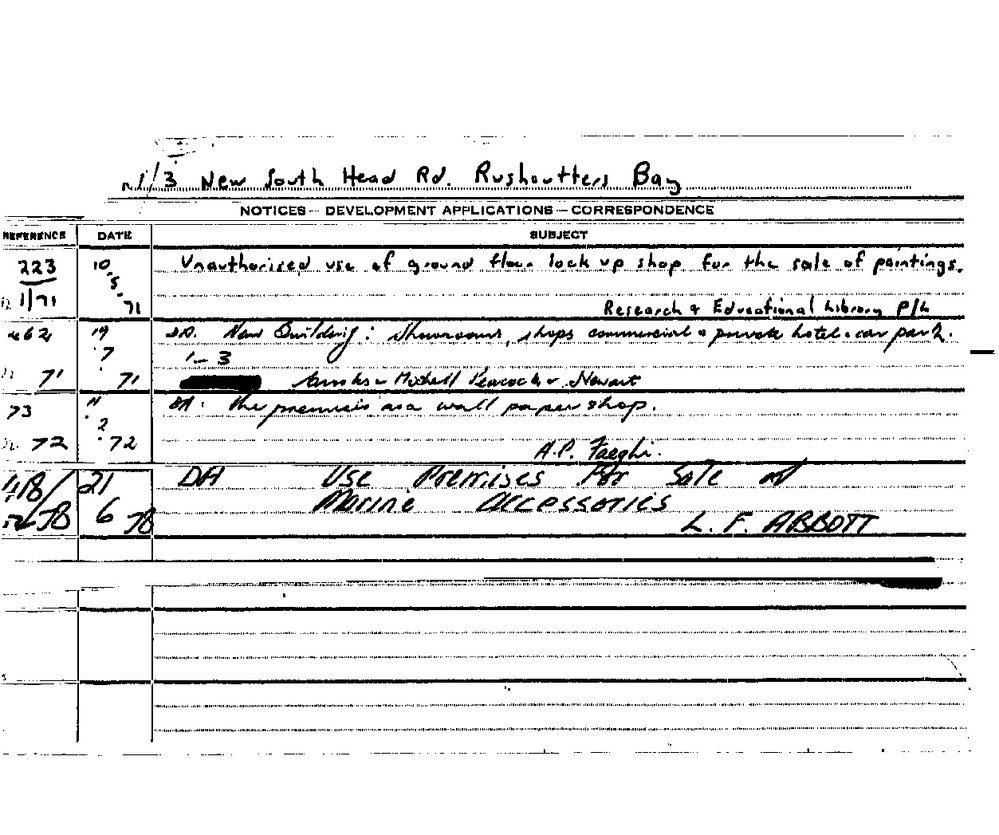 1/3 New South Head Rd. Rushcutters Bay
NOTICES — DEVELOPMENT APPLICATIONS — CORRESPONDENCE
REFERENCE DATE SUBJECT
223 10. Unauthorised use of ground floor lock up shop for the sale of paintings.
1/71 5. 71 Research & Educational Library P/L
462 19 D.A. New Building: Showrooms, shops commercial & private hotel & car park.
7 1-3
71 71 Mitchell Peacock &
73 11 DA. the premises as a wall paper shop.
2
72 72 A.P. Faeghi.
418/ 21 DA Use Premises For Sale of
Marine Accessories
78 6 78 L. F. ABBOTT